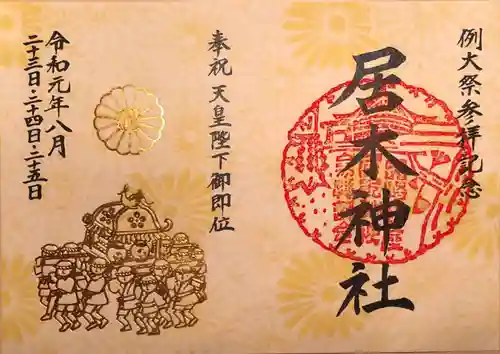 例大祭参拝記念
居木神社
奉祝 天皇陛下御即位
令和元年八月
二十三日・二十四日・二十五日